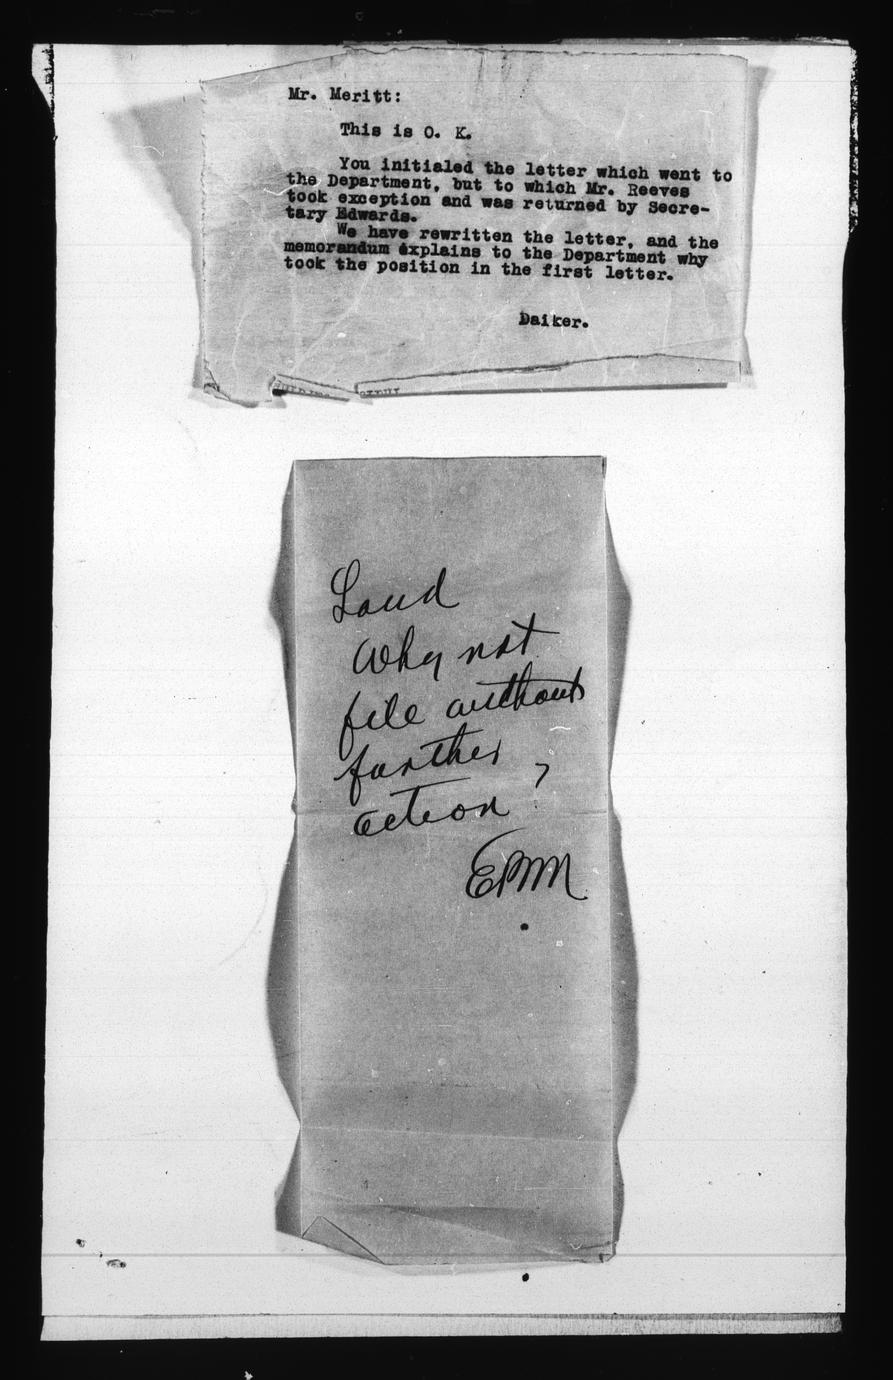 Mr. Meritt:
This is O. K.
You initialed the letter which went to
the Department, but to which Mr. Reeves
took exception and was returned by Secre-
tary Edwards.
We have rewritten the letter, and the
memorandum explains to the Department why
took the position in the first letter.
Daiker.
Land
Why not
file without
further
action ?
EBMM